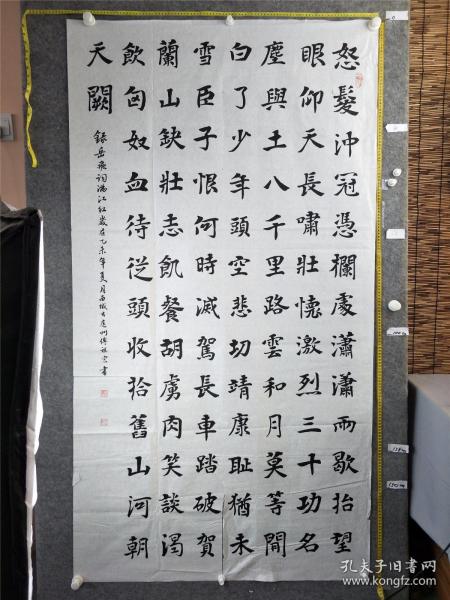 怒髮沖冠憑欄處瀟瀟雨歇抬望
眼仰天長嘯壯懷激烈三十功名
塵與土八千里路雲和月莫等閒
白了少年頭空悲切靖康耻猶未
雪臣子恨何時滅駕長車踏破賀
蘭山缺壯志飢餐胡虜肉笑談渴
飲匈奴血待從頭收拾舊山河朝
天闕
錄岳飛詞滿江紅歲在乙未年夏月書
孔夫子旧书网
www.kongfz.com